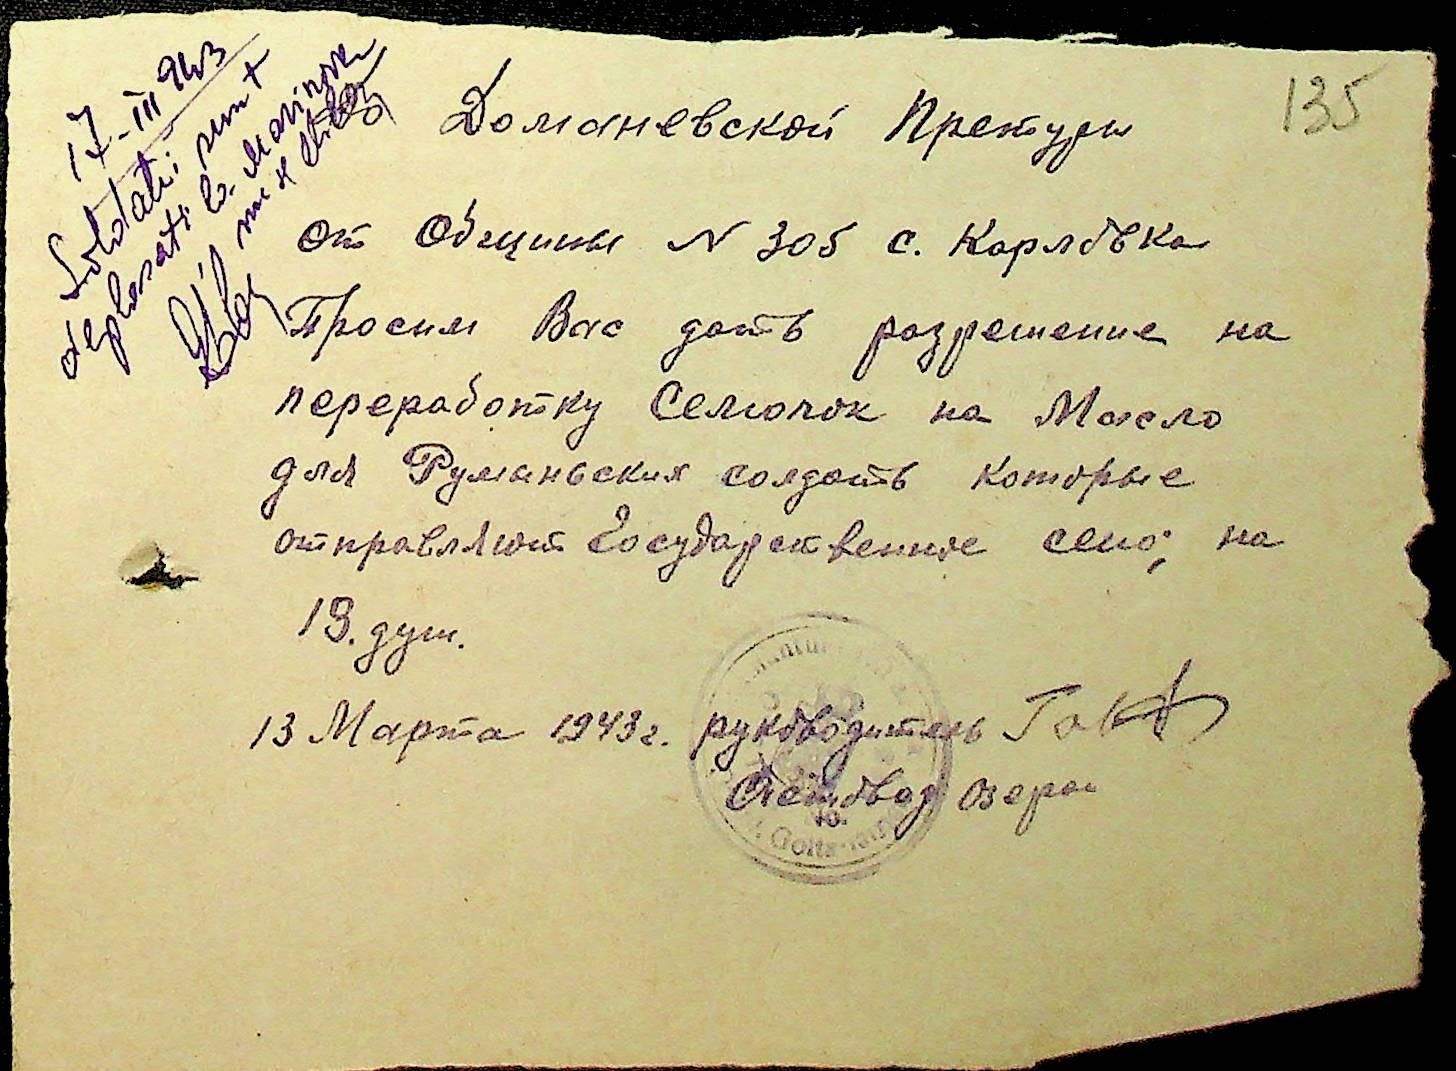 135
17-III 943
Soldatii sunt
deplasati
Доманевской Претуры
От Общины N 305 с. Карловка
Просим Вас дать разрешение на
переработку Семючок на Масло
для Румыньских солдать которые
отправляют Государственное сено; на
19. душ.
13 Марта 1943 г. руководитель
Озера
Golta